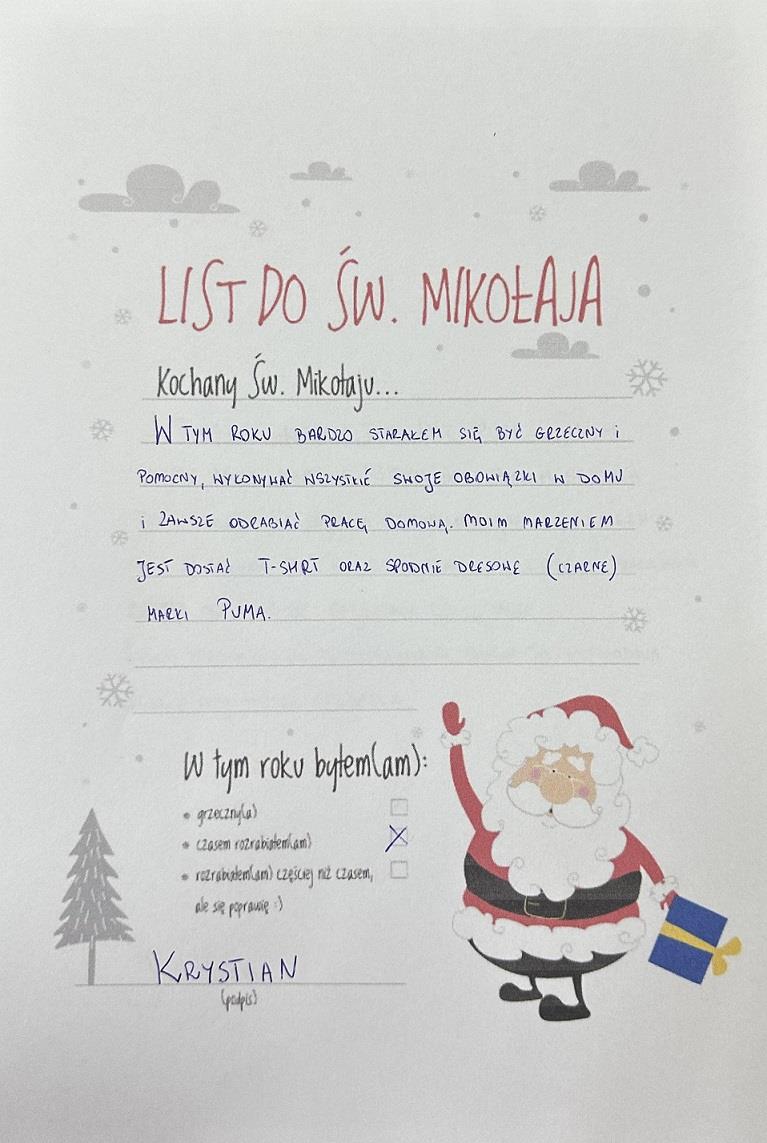 LIST DO ŚW. MIKOŁAJA
Kochany Św. Mikołaju...
W TYM ROKU BARDZO STARAŁEM SIĘ BYĆ GRZECZNY i
POMOCNY, WYKONYWAĆ WSZYSTKIĆ SWOJE OBOWIĄZKI W DOMU
i ZAWSZE ODRABIAĆ PRACĘ DOMOWĄ. MOIM MARZENIEM
JEST DOSTAĆ T-SHRT ORAZ SPODNIE DRESOWE (CZARNE)
MARKI PUMA.
W tym roku byłem(am):
• grzeczny(a)
• czasem rozrabiałem(am)
• rozrabiałem(am) częściej niż czasem,
ale się poprawię :)
KRYSTIAN
(podpis)